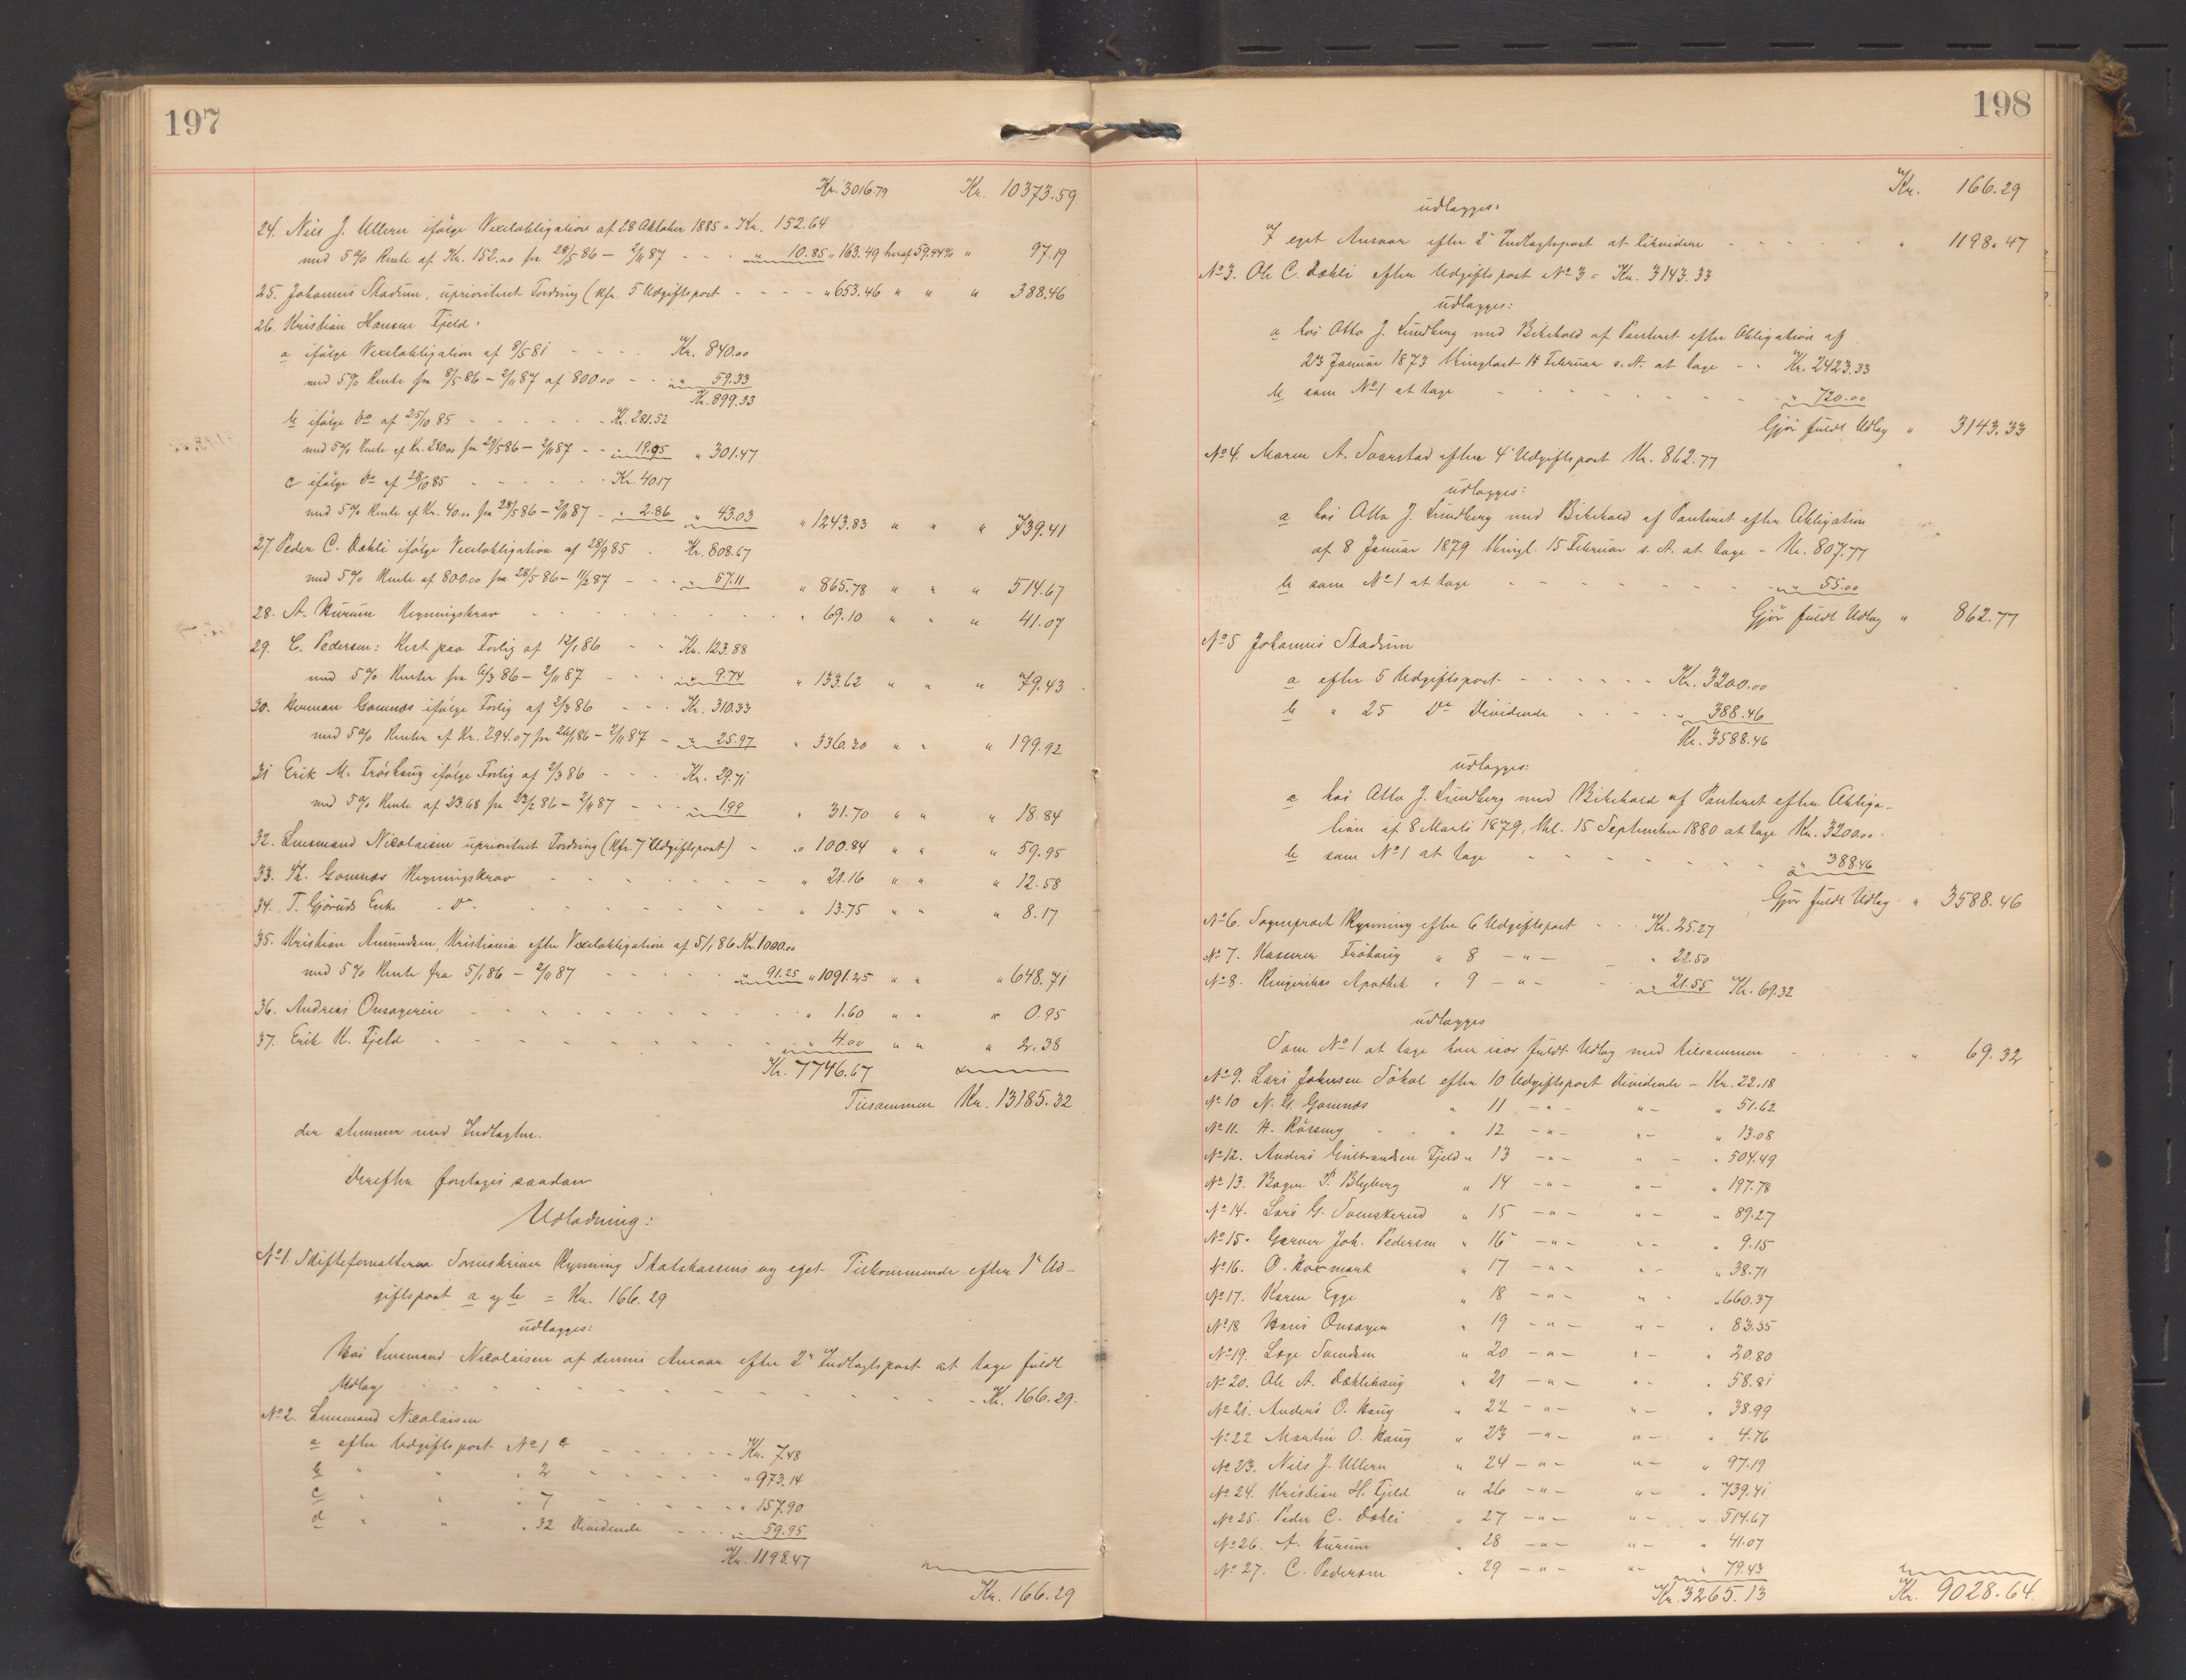 197
Kr. 3016.79 Kr. 10373.59
24. Nils J. Ullern ifølge Vexelobligation af 28 Oktober 1885 = Kr. 152.64
med 5% Rente af Kr. 152.00 fra 28/5 86 – 2/11 87 - - - " 10.85 " 163.49 heraf 59.44% " 97.19
25. Johannes Stadum, uprioriteret Fordring (Kfr. 5 Udgiftspost - - - - " 653.46 " " " 388.46
26. Kristian Hansen Fjeld:
a ifølge Vexelobligation af 8/5 81 - - - - Kr. 840.00
med 5% Rente fra 8/5 86 – 2/11 87 af 800.00 - - " 59.33
Kr. 899.33
b ifølge Do af 25/10 85 - - - - - - Kr. 281.52
med 5% Rente af Kr. 280.00 fra 29/5 86 – 2/11 87 - - " 19.95 " 301.47
c ifølge Do af 28/10 85 - - - - - - Kr. 40.17
med 5% Rente af Kr. 40.00 fra 28/5 86 – 2/11 87 - " 2.86 " 43.03 " 1243.83 " " " 739.41
27. Peder C. Dæhli ifølge Vexelobligation af 28/9 85 - Kr. 808.67
med 5% Rente af 800.00 fra 28/5 86 – 11/2 87 - - - " 57.11 " 865.78 " " " 514.67
28. A. Hurum Regningskrav - - - - - - - - " 69.10 " " " 41.07
29. C. Pedersen: Rest paa Forlig af 12/1 86 - - Kr. 123.88
med 5% Renter fra 6/3 86 – 2/11 87 - - - " 9.74 " 133.62 " " " 79.43
30. Herman Gomnæs ifølge Forlig af 2/3 86 - - - Kr. 310.33
med 5% Renter af Kr. 294.07 fra 26/1 86 – 2/11 87 - " 25.97 " 336.30 " " " 199.92
31 Erik M. Frøshaug ifølge Forlig af 2/3 86 - - - Kr. 29.71
med 5% Rente af 23.68 fra 23/2 86 – 2/11 87 - - - " 1.99 " 31.70 " " " 18.84
32. Lensmand Nicolaisen uprioriteret Fordring (Kfr. 7 Udgiftspost) - " 100.84 " " " 59.95
33. Th. Gomnæs Regningskrav - - - - - - - " 21.16 " " " 12.58
34. T. Gjøruds Enke - Do - - - - - - - - " 13.75 " " " 8.17
35. Kristian Amundsen, Kristiania efter Vexelobligation af 5/1 86 Kr. 1000.00
med 5% Rente fra 5/1 86 – 2/11 87 - - - - - " 91.25 " 1091.25 " " " 648.71
36. Andreas Onsageren - - - - - - - - - " 1.60 " " " 0.95
37. Erik K. Fjeld - - - - - - - - - " 4.00 " " " 2.38
Kr. 7746.67
Tilsammen Kr. 13185.32
der stemmer med Indtægten.
Derefter foretages saadan
Udlodning:
No 1. Skifteforvalteren Sorenskriver Rynning Statskassens og eget Tilkommende efter 1ste Ud-
giftspost a og b = Kr. 166.29
udlægges:
Hos Lensmand Nicolaisen af dennes Ansvar efter 2den Indtægtspost at tage fuldt
Udlæg - - - - - - - - - - - - - - Kr. 166.29.
No 2. Lensmand Nicolaisen
a efter Udgiftspost No 1 c - - - - - - Kr. 7.48
b " " " 2 - - - - - " 973.14
c " " " 7 - - - - - " 157.90
d " " " 32 Dividende - - - " 59.95
Kr. 1198.47
Kr. 166.29
198
Kr. 166.29
udlægges:
I eget Ansvar efter 2den Indtægtspost at likvidere - - - - - - " 1198.47
No 3. Ole C. Dæhli efter Udgiftspost No 3 = Kr. 3143.33
udlægges:
a hos Otto J. Lundberg med Bibehold af Panteret efter Obligation af
23 Januar 1873 thinglæst 14 Februar s. A. at tage - - Kr. 2423.33
b som No 1 at tage - - - - - - - - " 720.00
Gjør fuldt Udlæg " 3143.33
No 4. Maren A. Svarstad efter 4 Udgiftspost Kr. 862.77
udlægges:
a hos Otto J. Lundberg med Bibehold af Panteret efter Obligation
af 8 Januar 1879 thingl. 15 Februar s. A. at tage - Kr. 807.77
b som No 1 at tage - - - - - - - - " 55.00
Gjør fuldt Udlæg " 862.77
No 5 Johannes Stadum
a efter 5 Udgiftspost - - - - - - Kr. 3200.00
b " 25 Do Dividende - - - - " 388.46
Kr. 3588.46
udlægges:
a hos Otto J. Lundberg med Bibehold af Panteret efter Obliga-
tion af 8 Marts 1879, thl. 15 September 1880 at tage Kr. 3200.00
b som No 1 at tage - - - - - - - - " 388.46
Gjør fuldt Udlæg " 3588.46
No 6. Sogneprest Rynning efter 6 Udgiftspost - - - Kr. 25.27
No 7. Kasserer Frøhaug " 8 - " - - " 22.50
No 8. Ringerikes Apothek " 9 - " - - " 21.55 Kr. 69.32
udlægges
Som No 1 at tage hver især fuldt Udlæg med tilsammen - - - - - " 69.32
No 9. Lars Johnsen Søhol efter 10 Udgiftspost Dividende - Kr. 22.18
No 10 N. G. Gomnæs " 11 - " - " - " 51.62
No 11. H. Rossing - - " 12 - " - " - " 13.08
No 12. Anders Gulbrandsen Fjeld " 13 - " - " - " 504.49
No 13. Bager P. Blyberg " 14 - " - " - " 197.78
No 14. Lars G. Svenskerud " 15 - " - " - " 89.27
No 15. Garver Joh. Pedersen " 16 - " - " - " 9.15
No 16. O. Hoxmark " 17 - " - " - " 38.71
No 17. Karen Egge " 18 - " - " - " 660.37
No 18 Hans Onsagen " 19 - " - " - " 83.35
No 19. Lage Svendsen " 20 - " - " - " 20.80
No 20. Ole A. Dæhlihaug " 21 - " - " - " 58.81
No 21. Anders O. Haug " 22 - " - " - " 38.99
No 22 Martin O. Haug " 23 - " - " - " 4.76
No 23. Nils J. Ullern " 24 - " - " - " 97.19
No 24. Kristian H. Fjeld " 26 - " - " - " 739.41
No 25. Peder C. Dæhli " 27 - " - " - " 514.67
No 26. A. Hurum " 28 - " - " - " 41.07
No 27. C. Pedersen " 29 - " - " - " 79.43
Kr. 3265.13 Kr. 9028.64